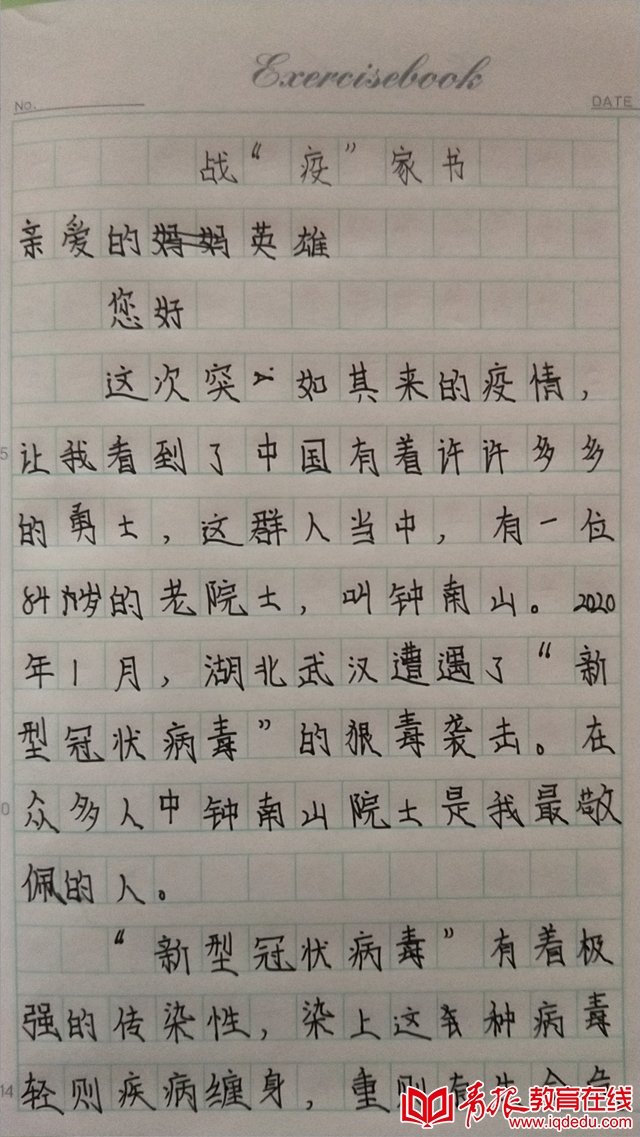 Exercisebook
No.
DATE
战“疫”家书
亲爱的妈妈英雄
您好
这次突如其来的疫情，
5
让我看到了中国有着许许多多
的勇士，这群人当中，有一位
84岁的老院士，叫钟南山。2020
年1月，湖北武汉遭遇了“新
型冠状病毒”的狠毒袭击。在
0
众多人中钟南山院士是我最敬
佩的人。
“新型冠状病毒”有着极
强的传染性，染上这种病毒
14
轻则疾病缠身，重则有生命危
青报教育在线
www.iqdedu.com